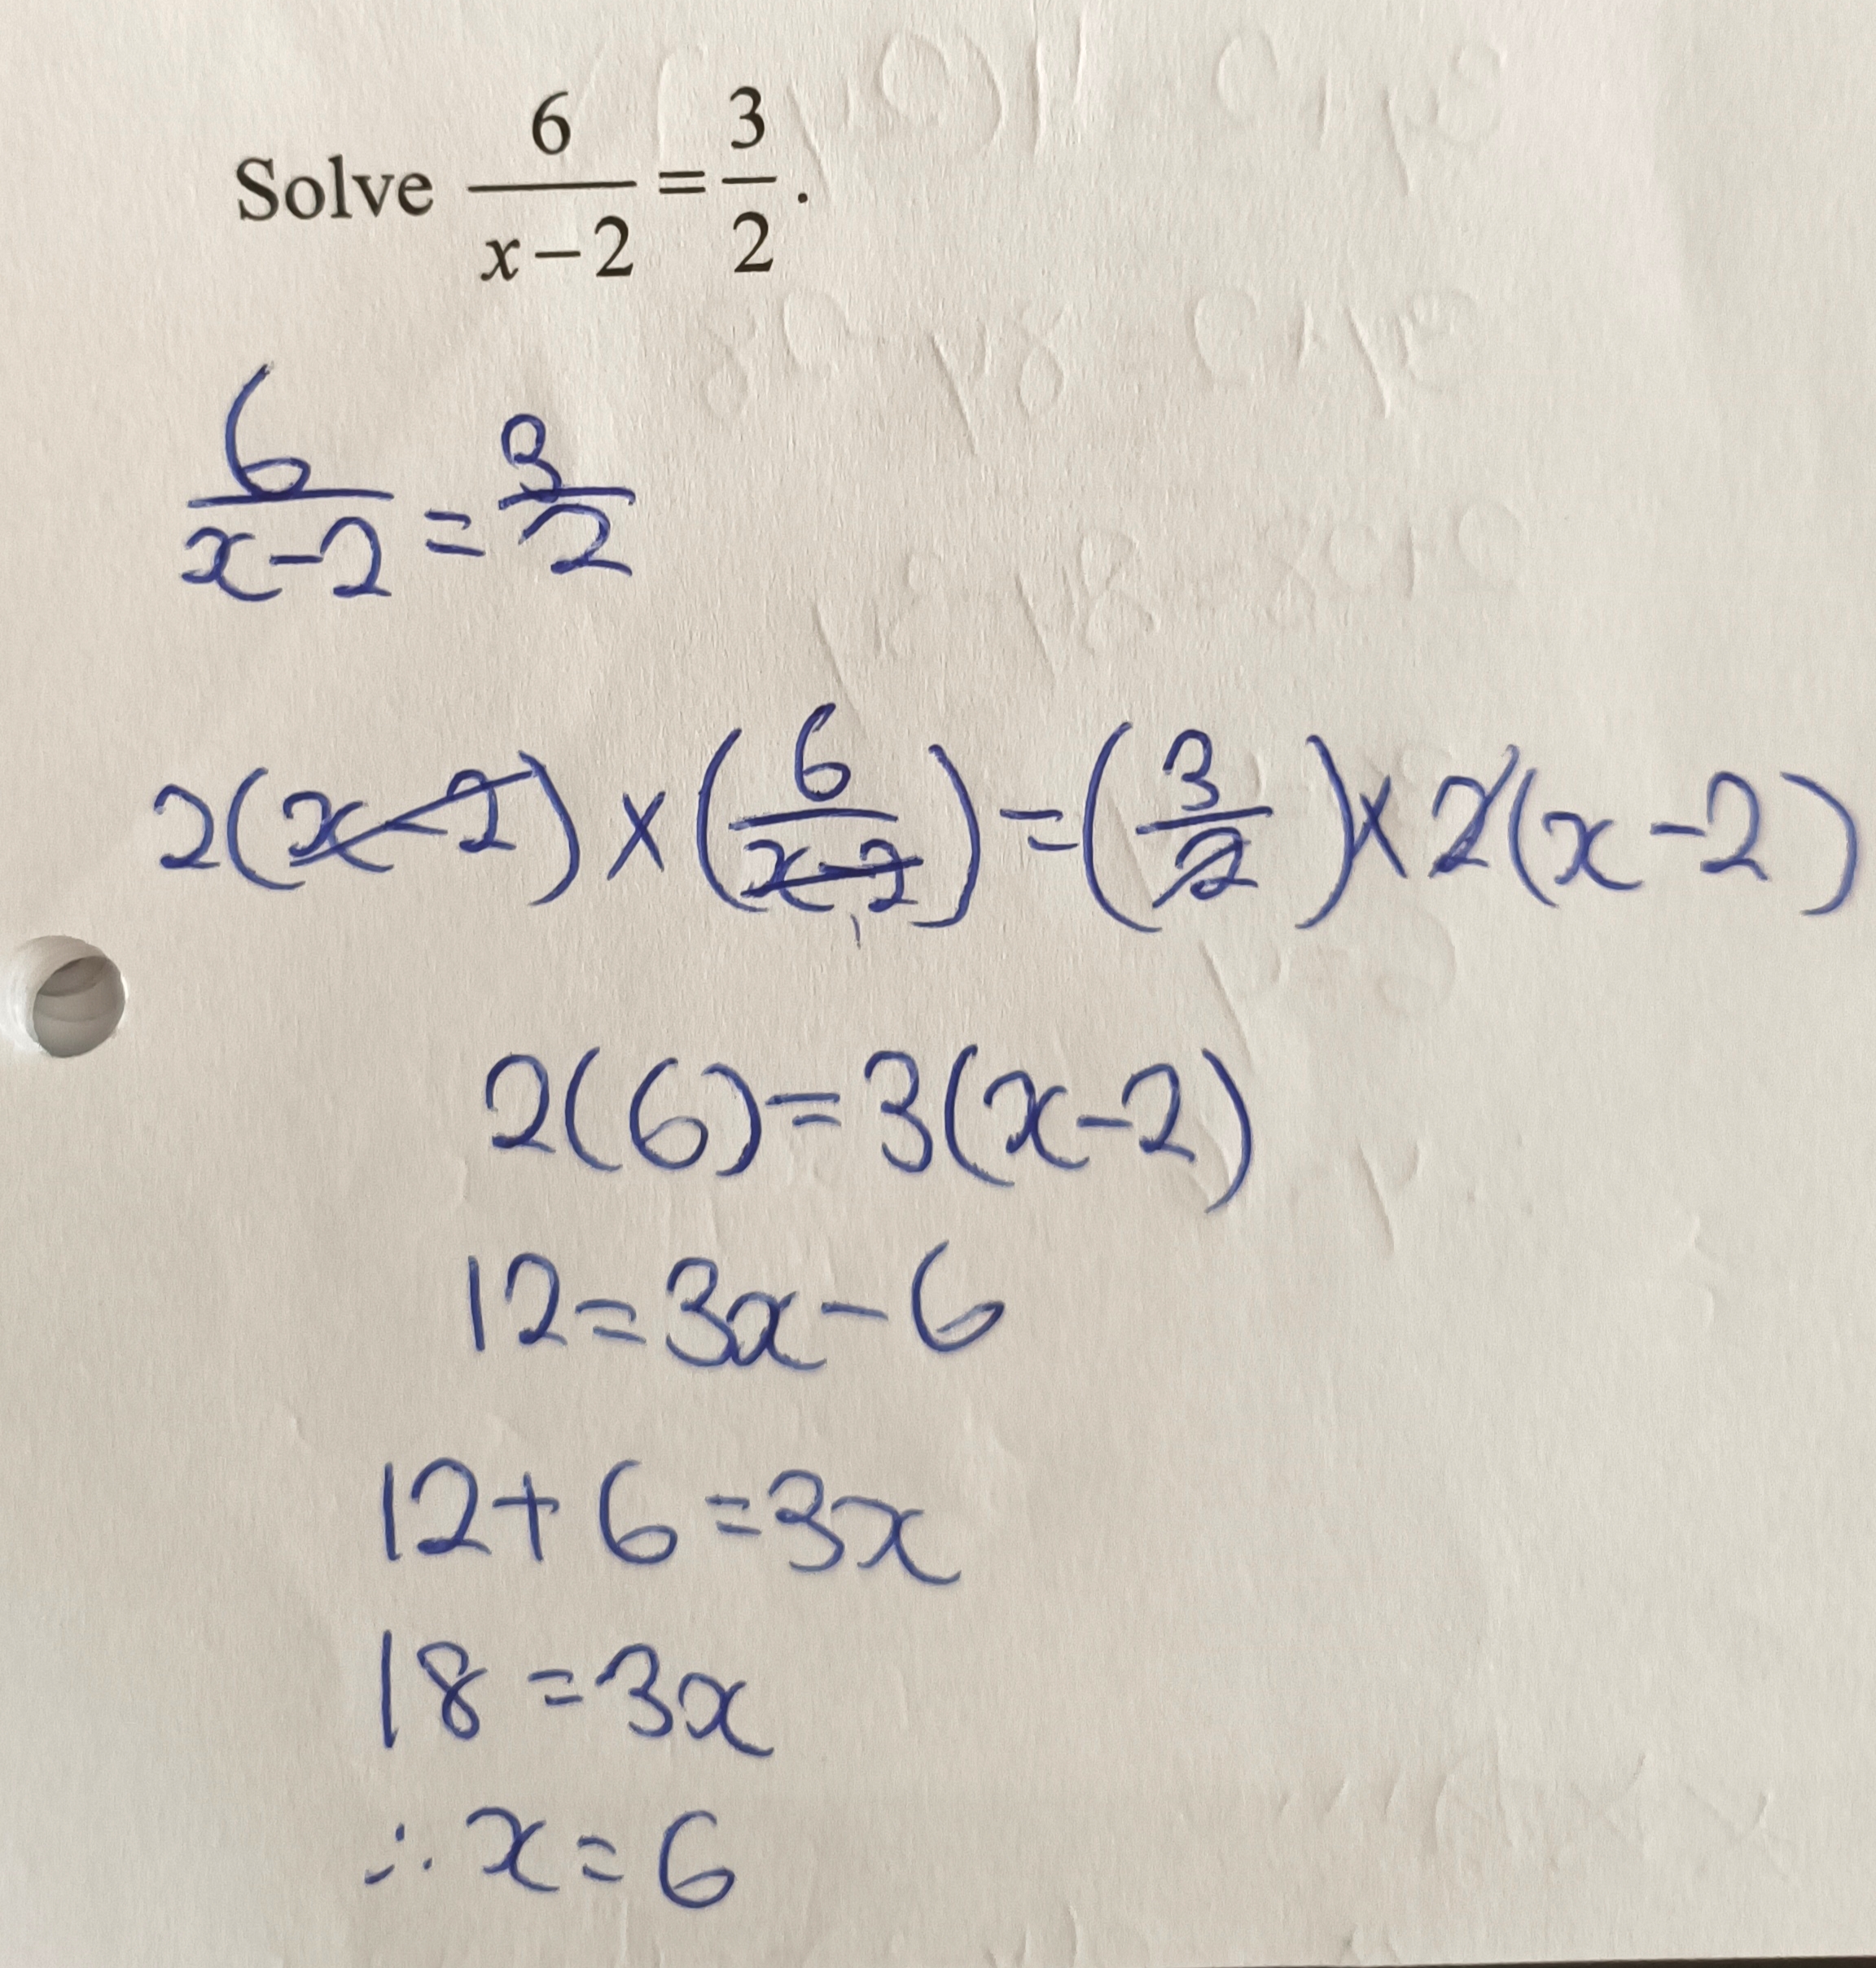 Solve 6/(x-2) = 3/2.
6/(x-2) = 3/2
2(x-2) × (6/(x-2)) = (3/2) × 2(x-2)
2(6) = 3(x-2)
12 = 3x - 6
12 + 6 = 3x
18 = 3x
∴ x = 6